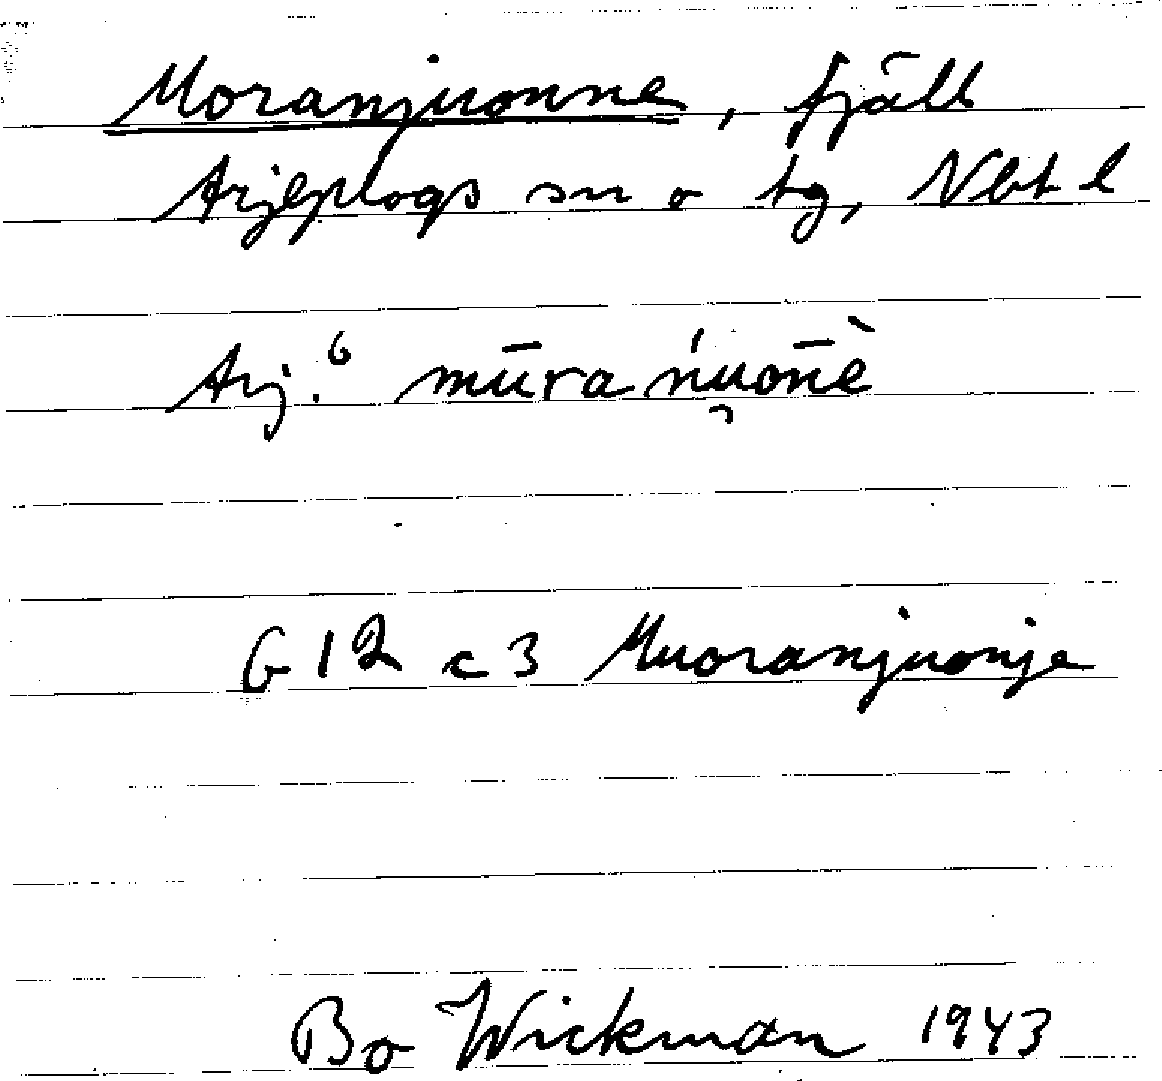 Moranjuonne, fjäll
Arjeplogs sn o tg, Nbt l
Arj.⁶ mūra ńu̯on̄ḕ
G 12 c 3 Muoranjuonje
Bo Wickman 1943